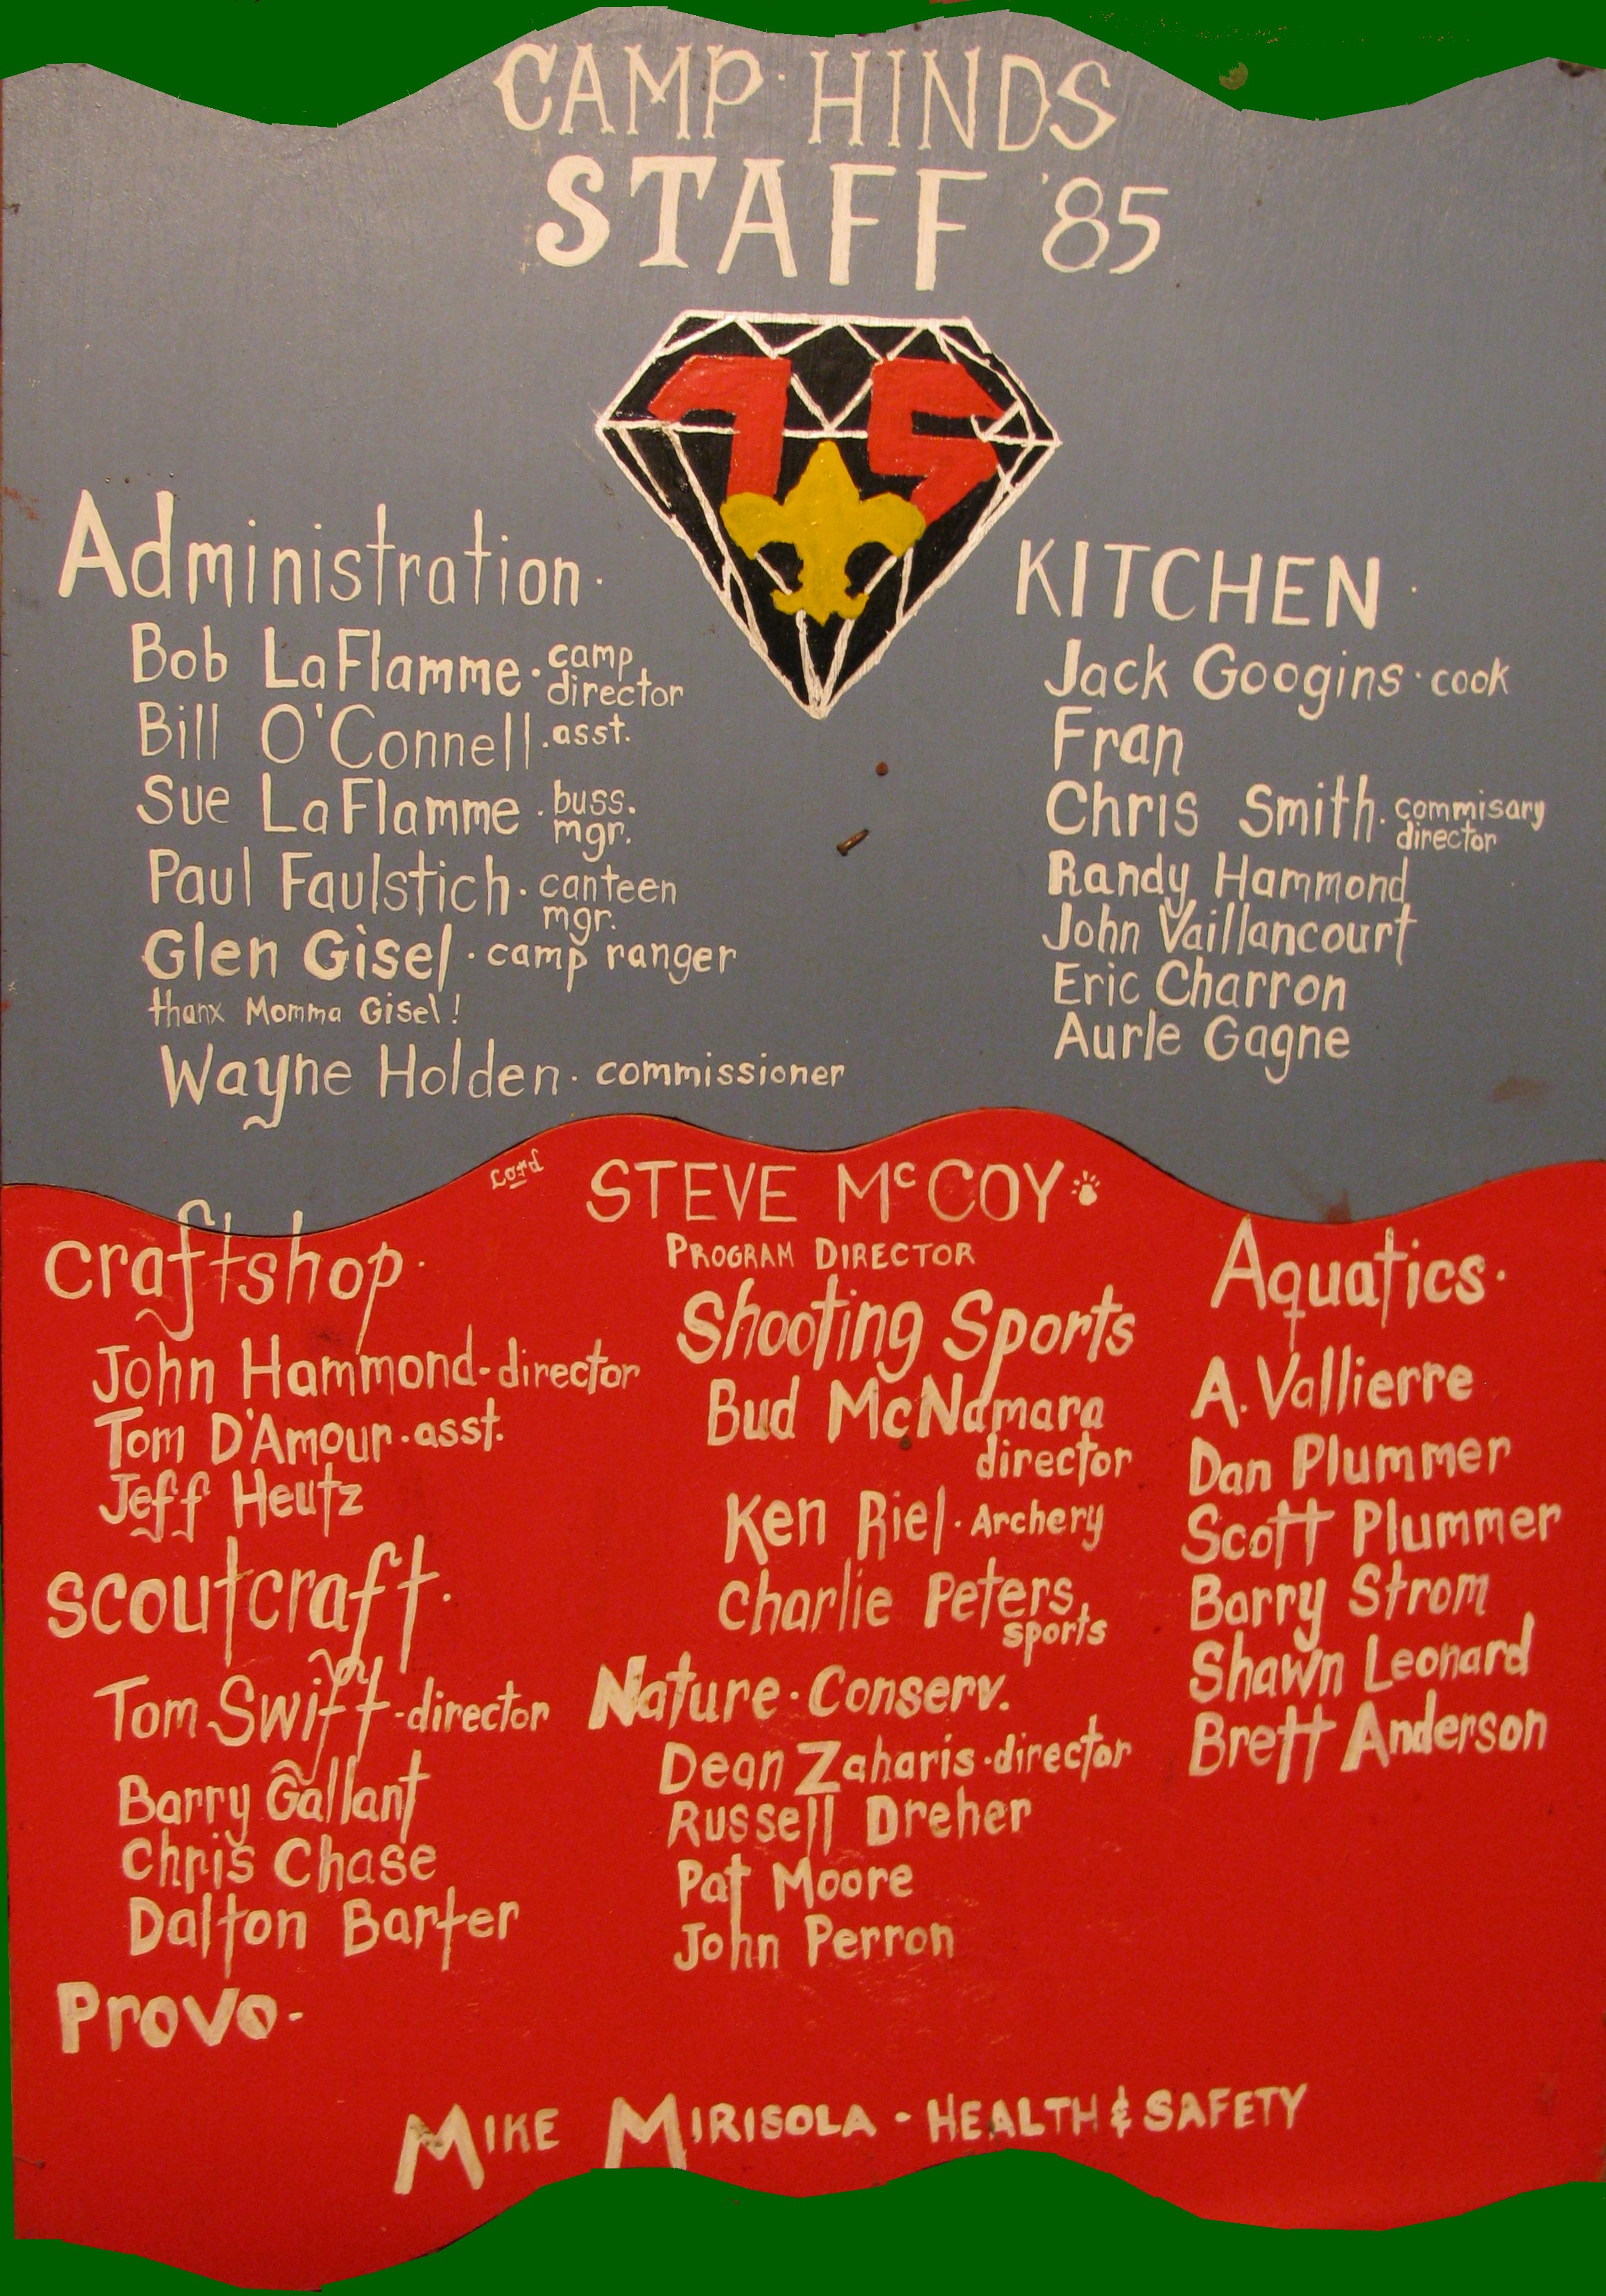 CAMP HINDS
STAFF '85
75
Administration.
Bob LaFlamme. camp director
Bill O'Connell. asst.
Sue LaFlamme. buss. mgr.
Paul Faulstich. canteen mgr.
Glen Gisel. camp ranger
thanx Momma Gisel!
Wayne Holden. commissioner
KITCHEN.
Jack Googins. cook
Fran
Chris Smith. commisary director
Randy Hammond
John Vaillancourt
Eric Charron
Aurle Gagne
Lord
STEVE McCOY
PROGRAM DIRECTOR
craftshop.
John Hammond-director
Tom D'Amour. asst.
Jeff Heutz
scoutcraft.
Tom Swift-director
Barry Gallant
Chris Chase
Dalton Barter
Provo-
Shooting Sports
Bud McNamara
director
Ken Riel. Archery
Charlie Peters,
sports
Nature. Conserv.
Dean Zaharis. director
Russell Dreher
Pat Moore
John Perron
Aquatics.
A. Vallierre
Dan Plummer
Scott Plummer
Barry Strom
Shawn Leonard
Brett Anderson
MIKE MIRISOLA - HEALTH & SAFETY